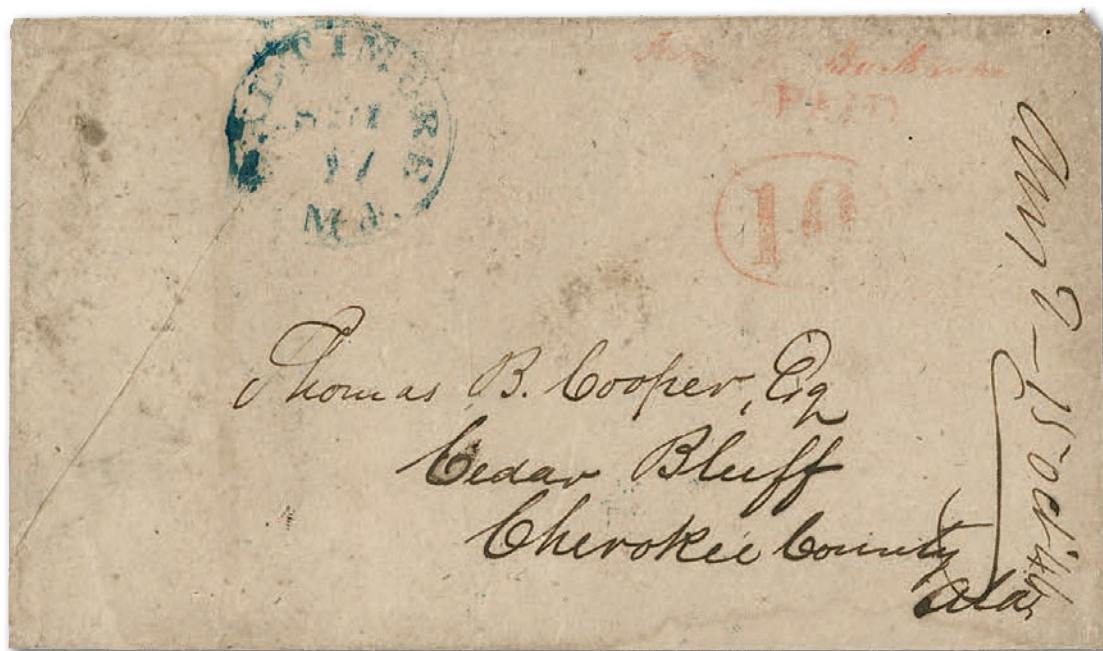 BALTIMORE
SEP
17
Md.
PAID
10
Thomas B. Cooper, Esq
Cedar Bluff
Cherokee County
Ala,